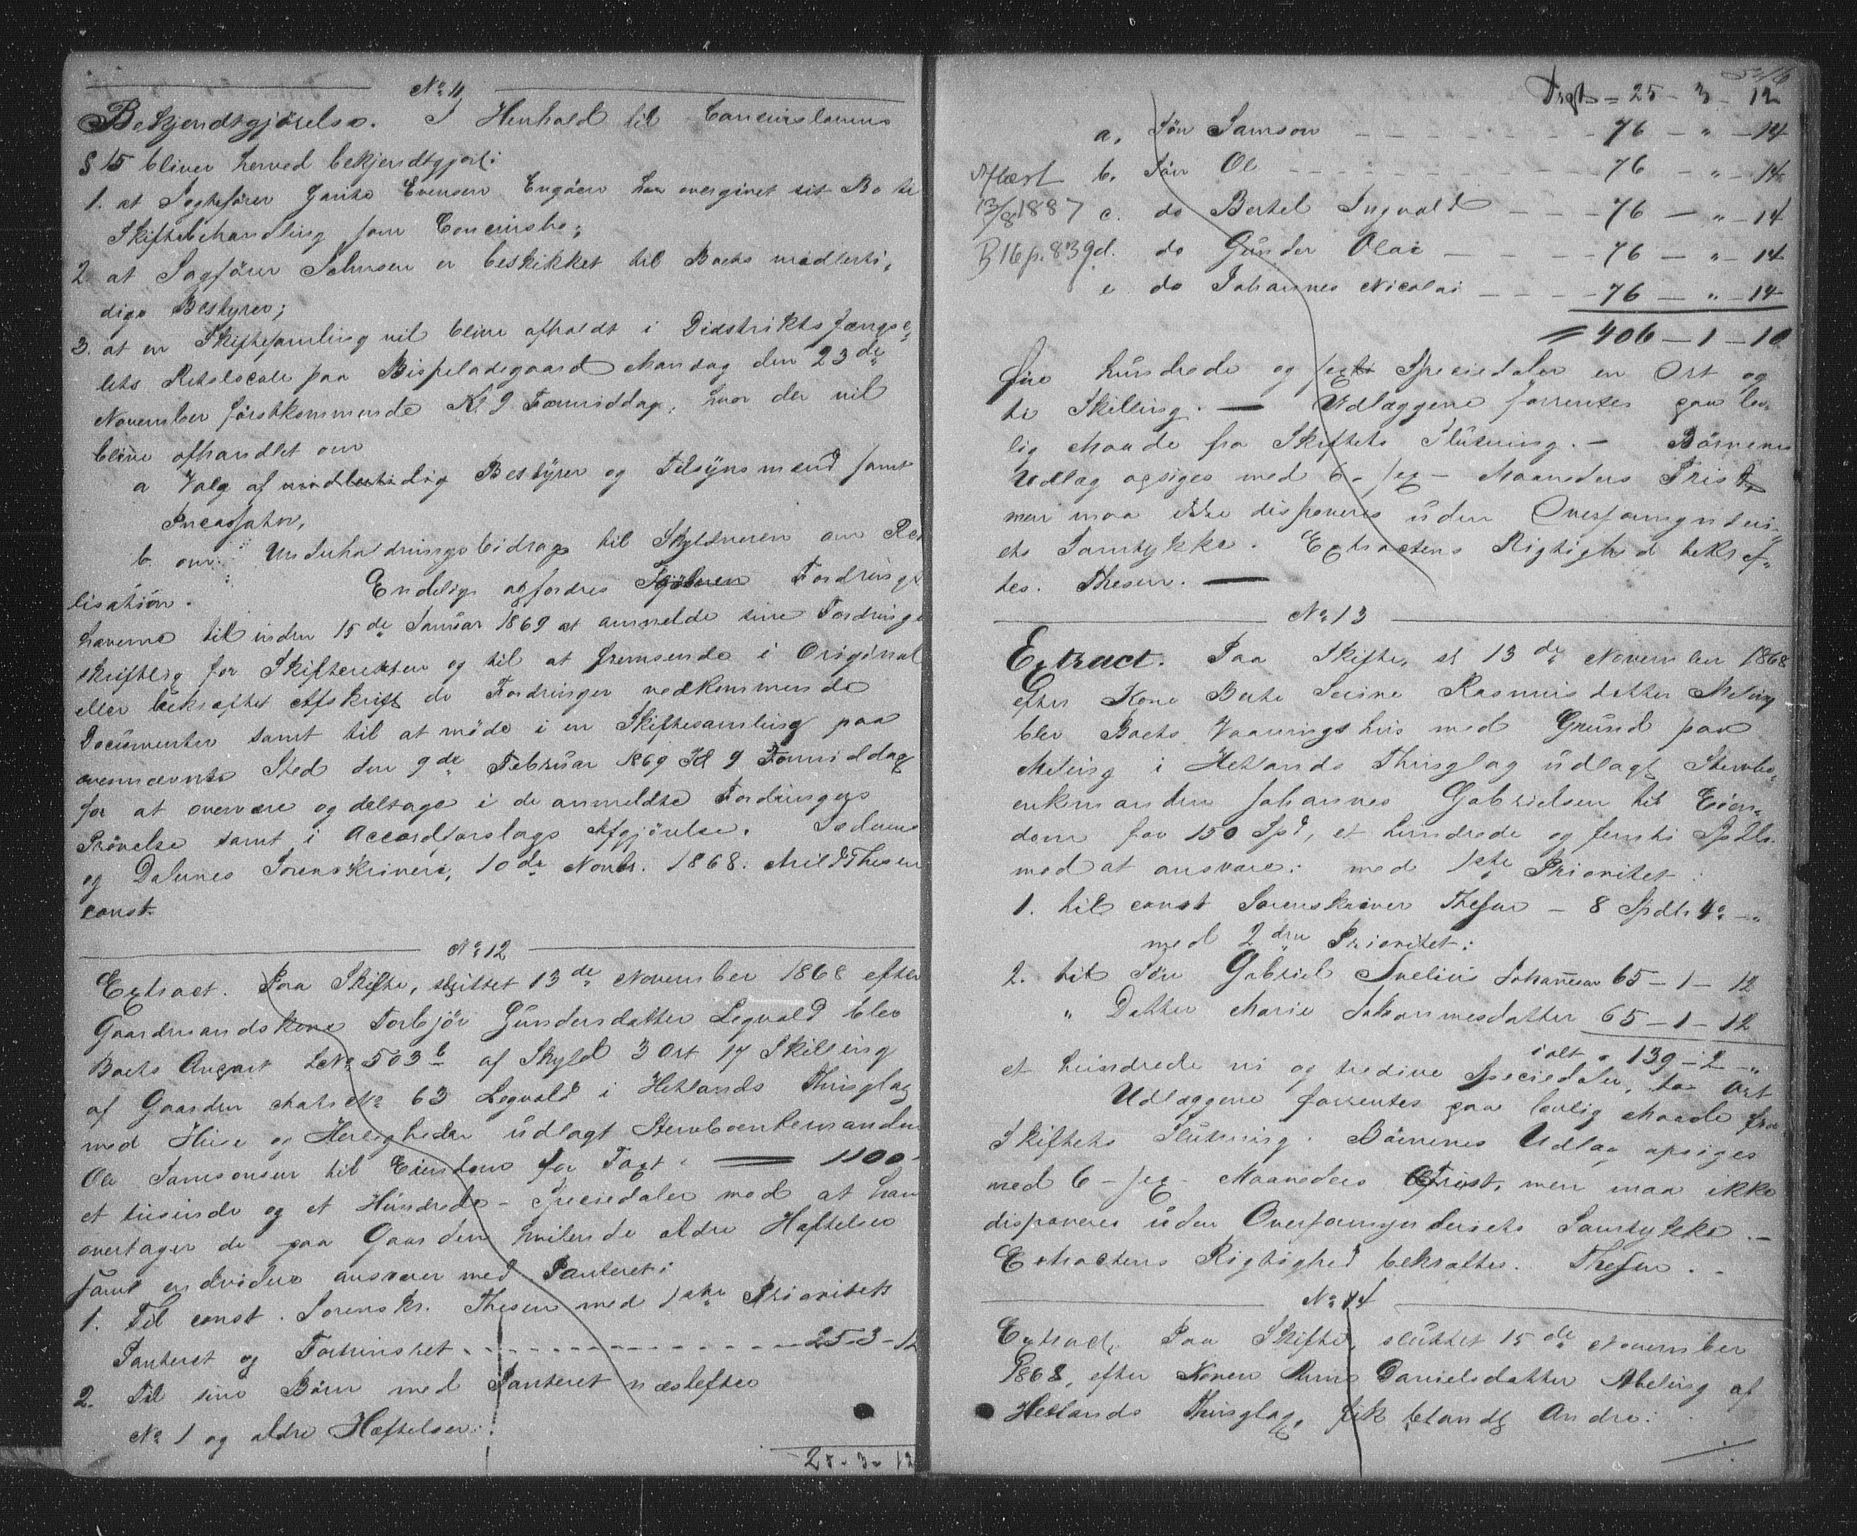 No 11
Bekjendtgjörelse. I Henhold til Concurslovens
§ 15 bliver herved bekjendtgjort:
1. at Evensen Engöen har overgivet sit Bo til
Skiftebehandling som Concursbo;
2. at Sagförer Salvesen er beskikket til Boets midlerti-
dige Bestyrer;
3. at en Skiftesamling vil blive afholdt i Distriktsfængse-
lets Retslocale paa Bispeladegaard Mandag den 23de
November förstkommende Kl 9 Formiddag, hvor der vil
blive afhandlet om
a Valg af midlertidig Bestyrer og Tilsynsmænd samt
Incassator,
b. om Underholdningsbidrag til Skyldneren om Rea
lisation. Endelig opfordres Fordrings
haverne til inden 15de Januar 1869 at anmelde sine Fordringer
skriftlig for Skifteretten og til at fremsende i Original
eller bekræftet Afskrift de Fordringer vedkommende
Documenter samt til at möde i en Skiftesamling paa
ovennævnte Sted den 9de Februar 1869 Kl 9 Formiddag
for at overvære og deltage i de anmeldte Fordringers
Prövelse samt i Accordforslags Afgjörelse. Jæderens
og Dalernes Sorenskriveri, 10de Novbr. 1868. Thesen
const.
No 12
Extract. Paa Skifte, sluttet 13de November 1868 efter
Gaardmandskone Torbjör Gundersdatter Legvald blev
Boets Anpart LNo 503b af Skyld 3 Ort 17 Skilling
af Gaarden Matr No 63 Legvald i Hetlands Thinglag
med Huse og Herligheder udlagt Stervboenkemanden
Ole Samsonsen til Eiendom for Taxt. — 1100
et tusinde og et Hundrede - Speciedaler mod at han
overtager de paa Gaarden hvilende ældre Hæftelser
samt endvidere ansvarer med Panteret:
1. Til const. Sorenskr. Thesen med 1ste Prioritets
Panteret og Fortrinsret - - - - 25-3-12
2. Til sine Börn med Panteret næstefter
No 1 og ældre Hæftelser:
25-3-12
Trspt = 25 - 3 - 12
a. Sön Samson - - - 76 - " - 14
b. Sön Ole - - - 76 - " - 14
c. do Bertel Ingvald - - - 76 - " - 14
d. do Gunder Olai - - - 76 - " - 14
e do Johannes Nicolai - - - 76 - " - 14
Aflæst
13/8 1887
B 16 p. 839
= 406 - 1 - 10
fire hundrede og sex Speciedaler en Ort og
ti Skilling. — Udlæggene forrentes paa lov-
lig Maade fra Skiftets Slutning. - Börnenes
Udlæg opsiges med 6 - sex - Maaneders Frist,
men maa ikke disponeres uden Overformynderi-
ets Samtykke. Extractens Rigtighed bekræf-
tes. Thesen. —
No 13
Extract. Paa Skifte, sl 13de November 1868
efter Kone Berte Serine Rasmusdatter Meling
blev Boets Vaaningshus med Grund paa
Meling i Hetlands Thinglag udlagt Stervbo-
enkemanden Johannes Gabrielsen til Eien-
dom for 150 Spd, et hundrede og femti Spdlr.
mod at ansvare: med 1ste Prioritet:
1. til const Sorenskriver Thesen - 8 Spdlr 4 - "
med 2den Prioritet:
2. til Sön Gabriel Johannesen 65 - 1 - 12
" Datter Marie Johannesdatter 65 - 1 - 12
ialt = 139 - 2 - "
et hundrede ni og tredive Speciedaler, to Ort
Udlæggene forrentes paa lovlig Maade fra
Skiftets Slutning. Börnenes Udlæg opsiges
med 6 - sex - Maaneders Frist, men maa ikke
disponeres uden Overformynderiets Samtykke. -
Extractens Rigtighed bekræftes. Thesen. -
No 14
Extract. Paa Skifte, sluttet 15de November
1868, efter Konen Danielsdatter Meling af
Hetlands Thinglag, fik blandt Andre: